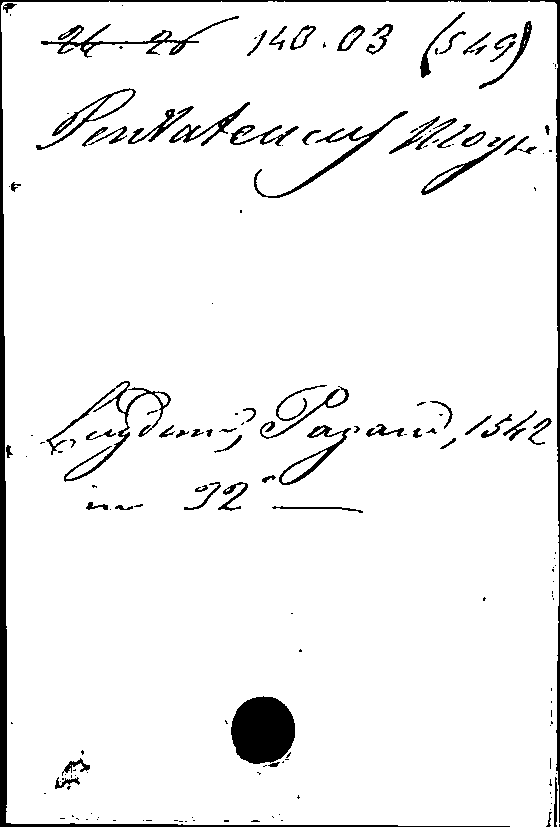 24. 26 140.03 (549)
Pentateucus Moysi
Lugduni, Pagani, 1542
in 32°